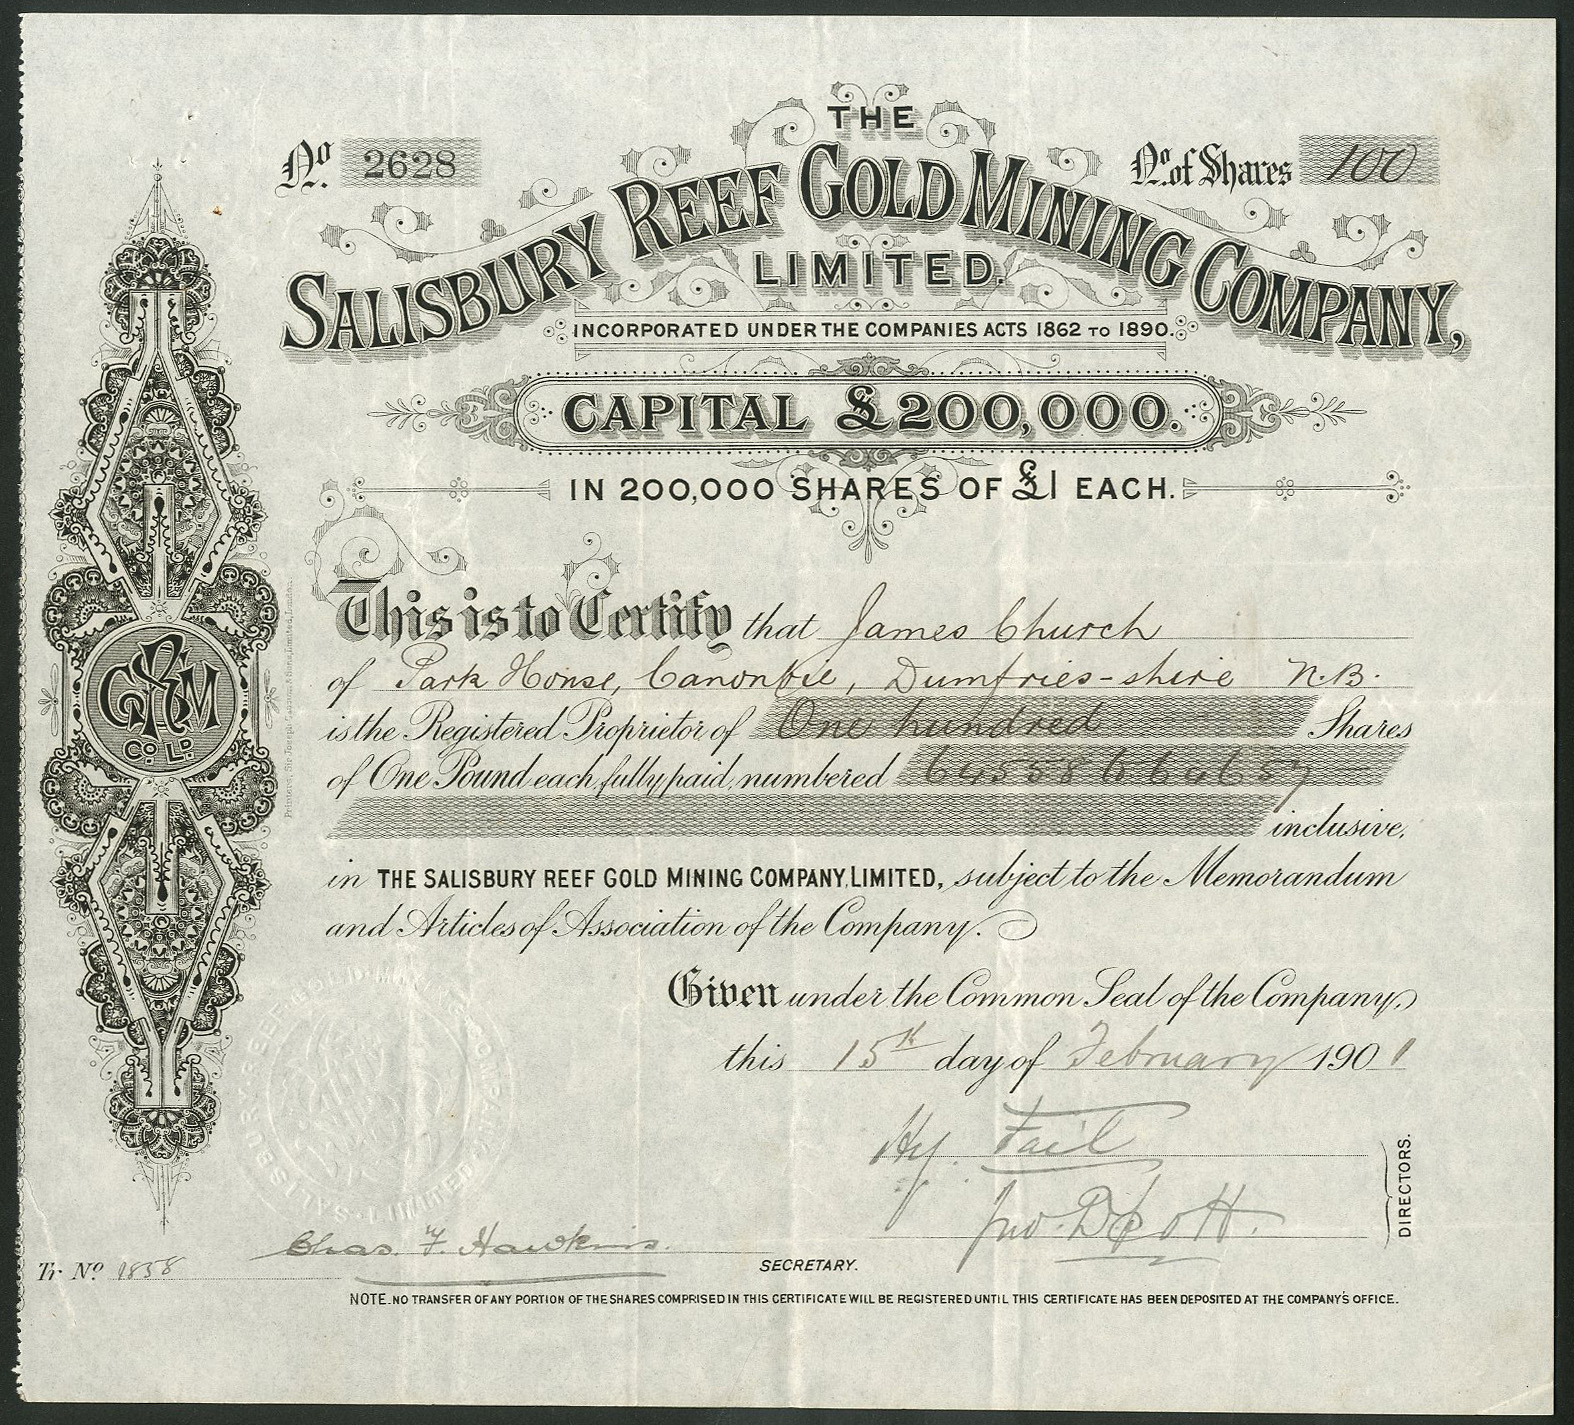 THE
No. 2628
No. of Shares 100
SALISBURY REEF GOLD MINING COMPANY,
LIMITED.
INCORPORATED UNDER THE COMPANIES ACTS 1862 TO 1890.
CAPITAL £200,000.
IN 200,000 SHARES OF £1 EACH.
This is to Certify that James Church
of Park House, Canonbie, Dumfries-shire N.B.
is the Registered Proprietor of One hundred Shares
of One Pound each, fully paid, numbered 64558 to 64657
inclusive,
in THE SALISBURY REEF GOLD MINING COMPANY, LIMITED, subject to the Memorandum
and Articles of Association of the Company.
Given under the Common Seal of the Company,
this 15th day of February 1901
Hy. Tail
Jno. D
DIRECTORS.
Chas. F. Hawkins.
SECRETARY.
Tr. No. 1858
NOTE. NO TRANSFER OF ANY PORTION OF THE SHARES COMPRISED IN THIS CERTIFICATE WILL BE REGISTERED UNTIL THIS CERTIFICATE HAS BEEN DEPOSITED AT THE COMPANY'S OFFICE.
GRM
CO. LD.
Printers, Sir Joseph Causton & Sons, Limited, London.
SALISBURY REEF GOLD MINING COMPANY LIMITED